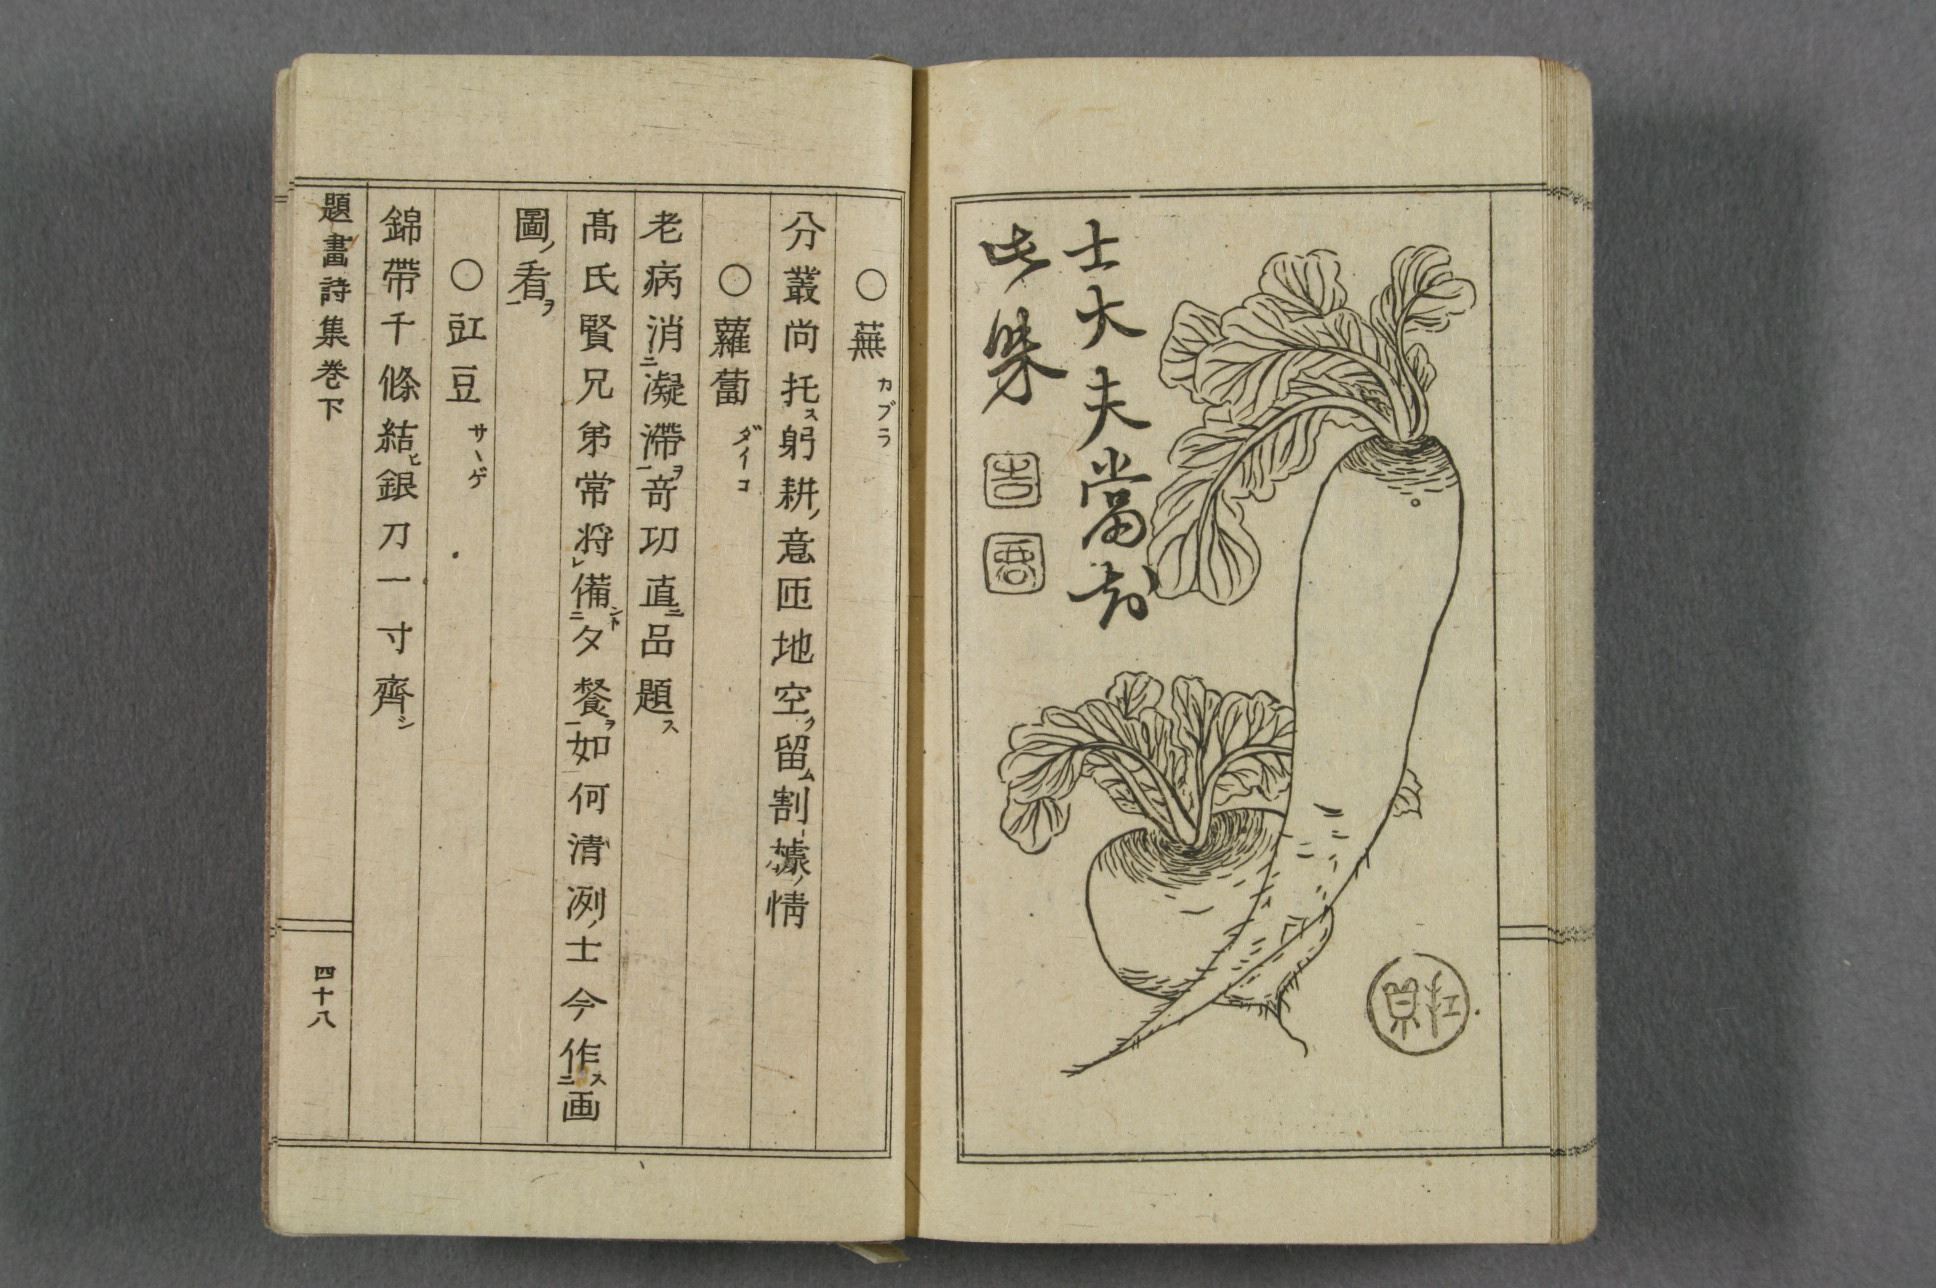 士大夫當知
此味
○蕪 カブラ
分叢尚托ス躬耕ノ意匝地空ク留ム割據ノ情
○蘿蔔 ダイコ
老病消ニ凝滯ヲ一竒功直ニ品題ス
髙氏賢兄弟常将レ備ント二夕餐ヲ一如何清冽ノ士今作ス二画
圖ノ看ヲ一
○豇豆 サヽゲ
錦帶千條結ヒ銀刀一寸齊シ
題畫詩集巻下
四十八